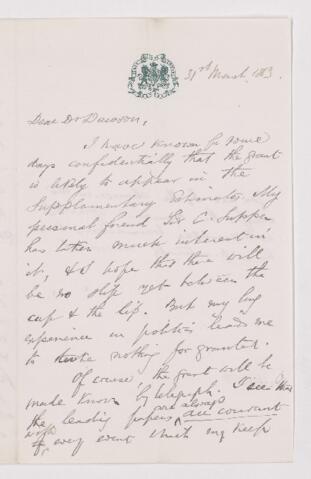 31st March, 1883.
Dear Dr Dawson,
I have known for some
days confidentially that the grant
is likely to appear in the
Supplementary Estimates. My
personal friend Sir C. Tupper
has taken much interest in
it, & I hope that there will
be no slip yet between the
cup & the lip. But my long
experience in politics leads me
to take nothing for granted.
Of course the grant will be
made known by telegraph. I see that
the leading papers are always au courant
of every event which may keep